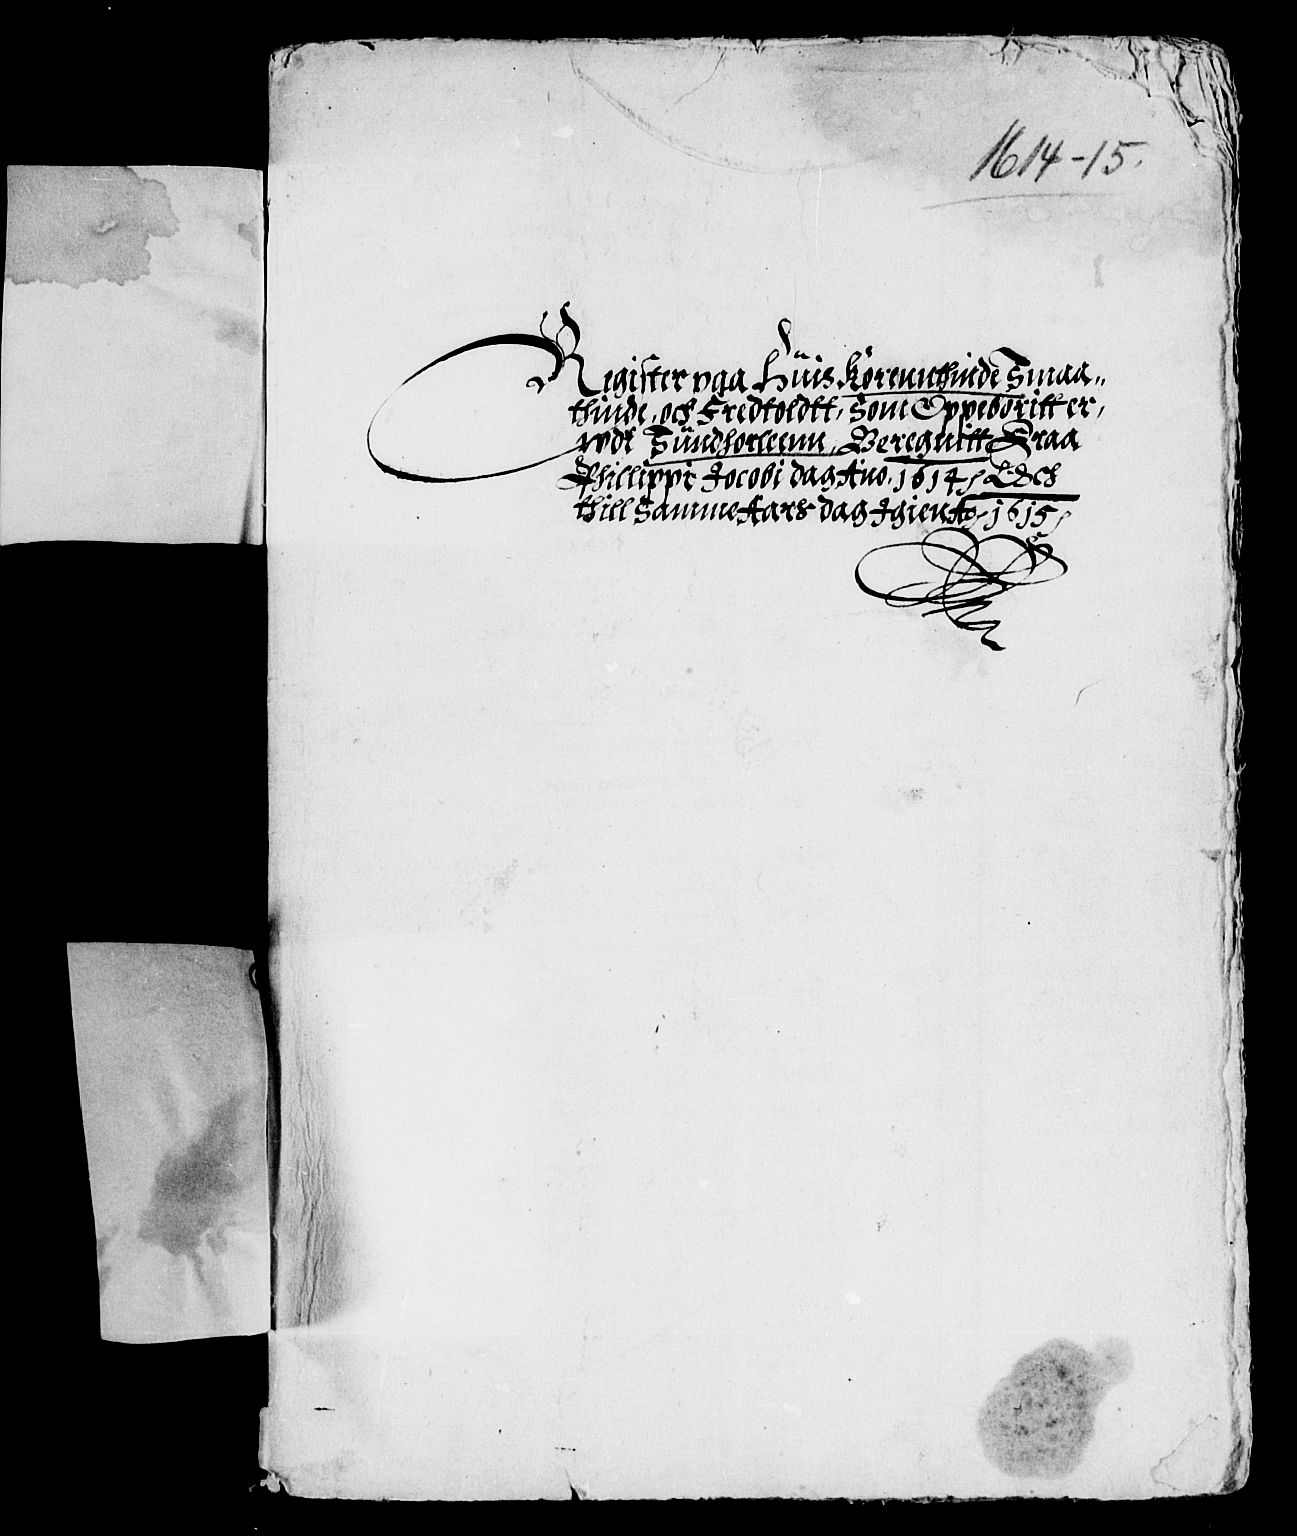 1614-15.
Register paa Huis Korennthinde Smaa,,
thinde, och Fredtoldtt, Som Oppeboritt er,
wdi Sündhorleenn, Beregnitt Fraa
Phillippi Jocobi dag Ano. 1614 / Och
thill Samme Aars dag Igien Ao 1615 /